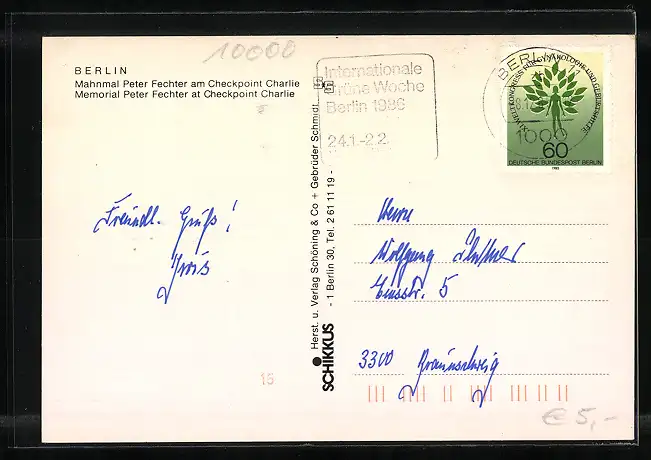 10000
BERLIN
Mahnmal Peter Fechter am Checkpoint Charlie
Memorial Peter Fechter at Checkpoint Charlie
Freundl. Gruß!
Iris
15
SCHIKKUS
Herst. u. Verlag Schöning & Co + Gebrüder Schmidt
- 1 Berlin 30, Tel. 2 61 11 19 -
Internationale
Grüne Woche
Berlin 1986
24.1.-2.2.
BERLIN
1000
XI. WELTKONGRESS FÜR GYNÄKOLOGIE UND GEBURTSHILFE
60
DEUTSCHE BUNDESPOST BERLIN
1985
Herrn
Wolfgang
5
3300 Braunschweig
€ 5,-